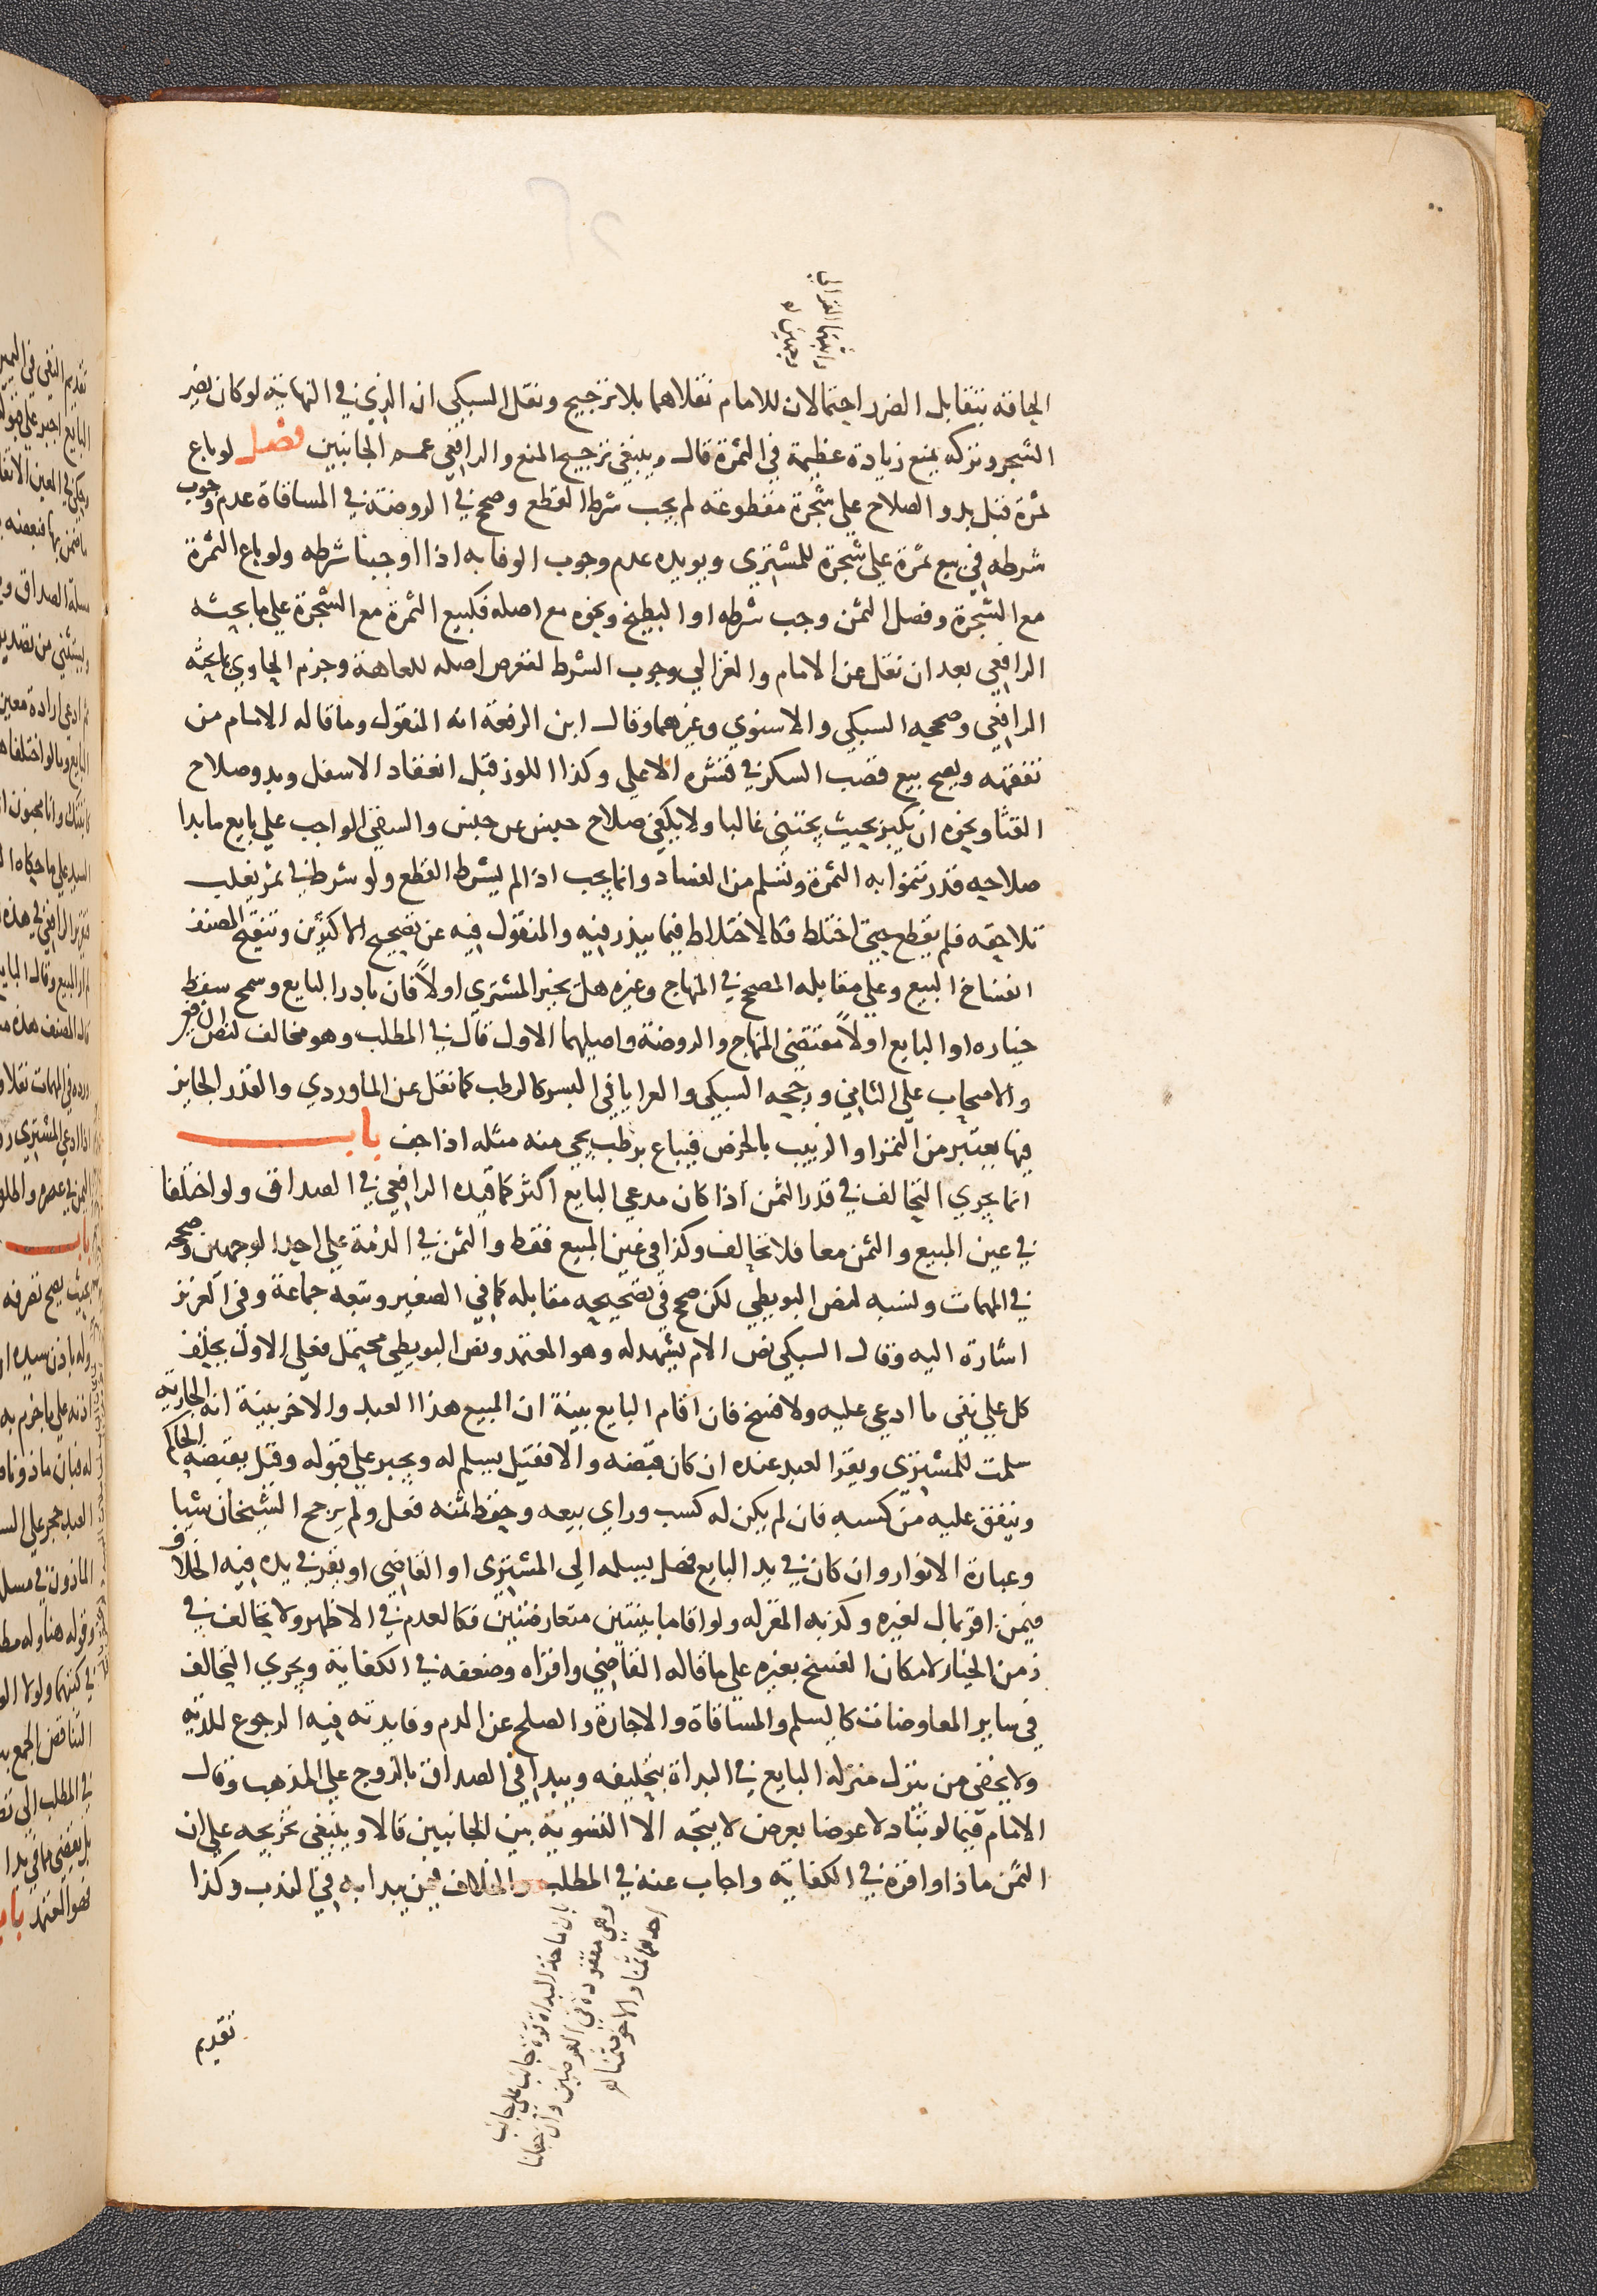 الحاقه بتقابل الضرر احتمالان للامام نقلاهما بلا ترجيح ونقل السبكي ان الذي في النهاية لو كان يضر
الشجر وتركه يمنع زيادة عظيمة في الثمرة قال وينبغي ترجيح المنع والرافعي عمم الجانبين فصل لو باع
ثمرة قبل بدو الصلاح على شجرة مقطوعة لم يجب شرط القطع وصحح في الروضة في المساقاة عدم وجوب
شرطه في بيع ثمرة على شجرة للمشتري ويويده عدم وجوب الوفا به اذا اوجبنا شرطه ولو باع الثمرة
مع الشجرة وفصل الثمن وجب شرطه او البطيخ ونحوه مع اصله فكبيع الثمرة مع الشجرة على ما بحثه
الرافعي بعد ان نقل عن الامام والغزالي وجوب الشرط لتعرض اصله للعاهة وجزم الحاوي بما بحثه
الرافعي وصححه السبكي والاسنوي وغيرهما وقال ابن الرفعة انه المنقول وما قاله الامام من
تفقهه ويصح بيع قصب السكر في قشره الاعلى وكذا اللوز قبل انعقاد الاسفل وبدو صلاح
القثا ونحوه ان يكبر بحيث يجتنى غالبا ولا يكفي صلاح جنس عن جنس والسقي الواجب على بايع ما بدا
صلاحه قدر تنموا به الثمرة وتسلم من الفساد وانما يجب اذا لم يشرط القطع ولو شرط في ثمر يغلب
تلاحقه فلم يقطع حتى اختلط فكالاختلاط فيما يندر فيه والمنقول فيه عن تصحيح الاكثرين وتنقيح المصنف
انفساخ البيع وعلى مقابله المصحح في المنهاج وغيره هل يخير المشتري اولاً فان بادر البايع وسمح سقط
خياره او البايع اولاً مقتضى المنهاج والروضة واصليهما الاول قال في المطلب وهو مخالف لنص
والاصحاب على الثاني ورجحه السبكي والعرايا في البسر كالرطب كما نقل عن الماوردي والقدر الجايز
فيها يعتبر من التمر او الزبيب بالخرص فيباع برطب يجي منه مثله اذا جف باب
انما يجري التحالف في قدر الثمن اذا كان مدعي البايع اكثر كما قيده الرافعي في الصداق ولو اختلفا
في عين المبيع والثمن معا فلا تحالف وكذا في عين المبيع فقط والثمن في الذمة على احد الوجهين وصححه
في المهمات ونسبه لنص البويطي لكن صحح في تصحيحه مقابله كما في الصغير وتبعه جماعة وفي العزيز
اشارة اليه وقال السبكي نص الام يشهد له وهو المعتمد ونص البويطي محتمل فعلى الاول يحلف
كل على نفي ما ادعي عليه ولا فسخ فان اقام البايع بينة ان المبيع هذا العبد والاخر بينة انه الجارية
سلمت للمشتري ويقر العبد عنده ان كان قبضه والا فقيل يسلم له ويجبر على قبوله وقيل يقبضه الحاكم
وينفق عليه من كسبه فان لم يكن له كسب وراي بيعه وحفظ ثمنه فعل ولم يرجح الشيخان شيا
وعبارة الانوار وان كان في يد البايع فهل يسلمه الى المشتري او القاضي او يقر في يده فيه الخلاف
فيمن اقر بمال لغيره وكذبه المقر له ولو اقاما بينتين متعارضتين فكالعدم في الاظهر ولا تحالف في
زمن الخيار لامكان الفسخ بغيره على ما قاله القاضي واقراه وضعفه في الكفاية ويجري التحالف
في ساير المعاوضات كالسلم والمساقاة والاجارة والصلح عن الدم وفايدته فيه الرجوع للدية
ولا يخفى من ينزل منزلة البايع في البداة بتحليفه ويبدا في الصداق بالزوج على المذهب وقال
الامام فيما لو تبادلا عرضا بعرض لا يتجه الا التسوية بين الجانبين قالا وينبغي تخريجه على ان
الثمن ماذا واقره في الكفاية واجاب عنه في المطلب والخلاف فيمن يبدا به في الندب وكذا
بان ماخذ البداة قوة جانب على جانب
وهي مفقودة في العرضين وان جعلنا
احدهما ثمنا والاخر مثمنا
تقديم